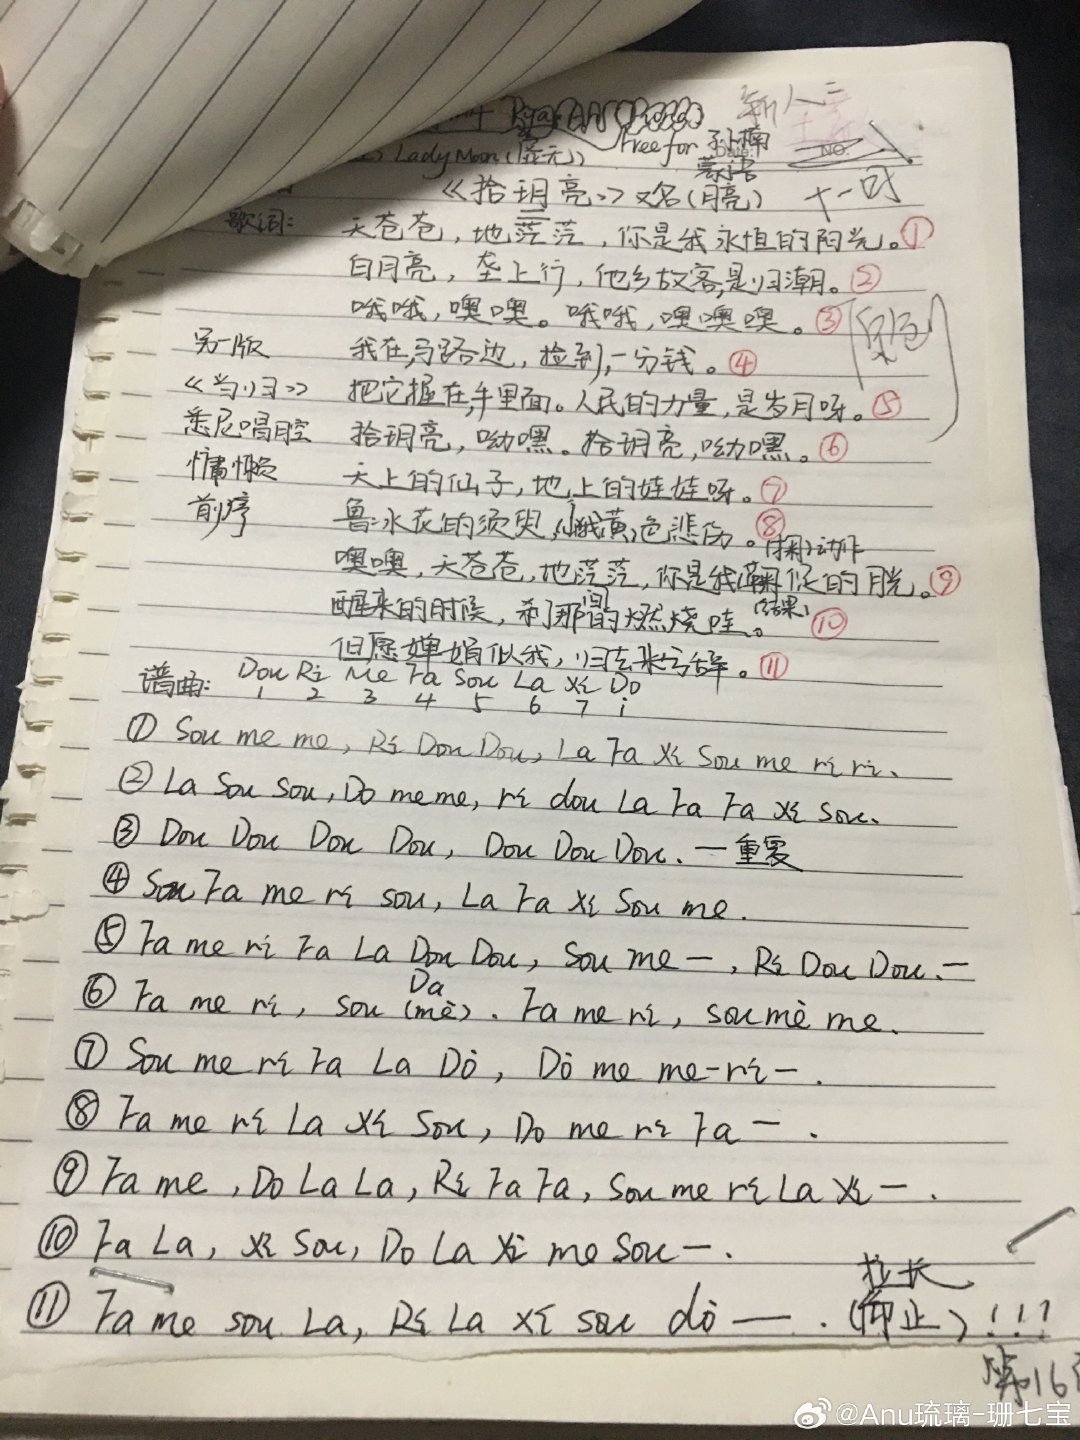 新人三
Free for 孙楠
NO.
Lady Moon
蒙语
《拾玥亮》又名(月亮) 十一时
歌词: 天苍苍，地茫茫，你是我永恒的阳光。①
白月亮，垄上行，他乡故客是归潮。②
哦哦，噢噢。哦哦，噢噢噢。③
另一版 我在马路边，捡到一分钱。④
《当归》 把它握在手里面。人民的力量，是岁月呀。⑤
悉尼唱腔 拾玥亮，呦嘿。拾玥亮，呦嘿。⑥
慵懒 天上的仙子，地上的娃娃呀。⑦
前序 鲁冰花的须臾，鹅黄色悲伤。⑧
(掬)动作
噢噢，天苍苍，地茫茫，你是我 的月光。⑨
醒来的时候，刹那间的燃烧哇。(结果) ⑩
但愿婵娟似我，归去来兮辞。⑪
谱曲: Dou Ri Me Fa Sou La Xi Do
1 2 3 4 5 6 7 i
① Sou me me, Ri Dou Dou, La Fa Xi Sou me ri ri.
② La Sou Sou, Do me me, ri dou La Fa Fa Xi sou.
③ Dou Dou Dou Dou, Dou Dou Dou. 一重复
④ Sou Fa me ri sou, La Fa Xi Sou me.
⑤ Fa me ri Fa La Dou Dou, Sou me — , Ri Dou Dou. —
Da
⑥ Fa me ri, sou (mè). Fa me ri, sou mè me.
⑦ Sou me ri Fa La Dò, Dò me me-ri-.
⑧ Fa me ri La Xi Sou, Do me ri Fa — .
⑨ Fa me, Do La La, Ri Fa Fa, Sou me ri La Xi — .
⑩ Fa La, Xi Sou, Do La Xi me Sou — .
拉长
⑪ Fa me sou La, Ri La Xi sou dò — . (仰止)!!!
第16页
@Anu琉璃-珊七宝